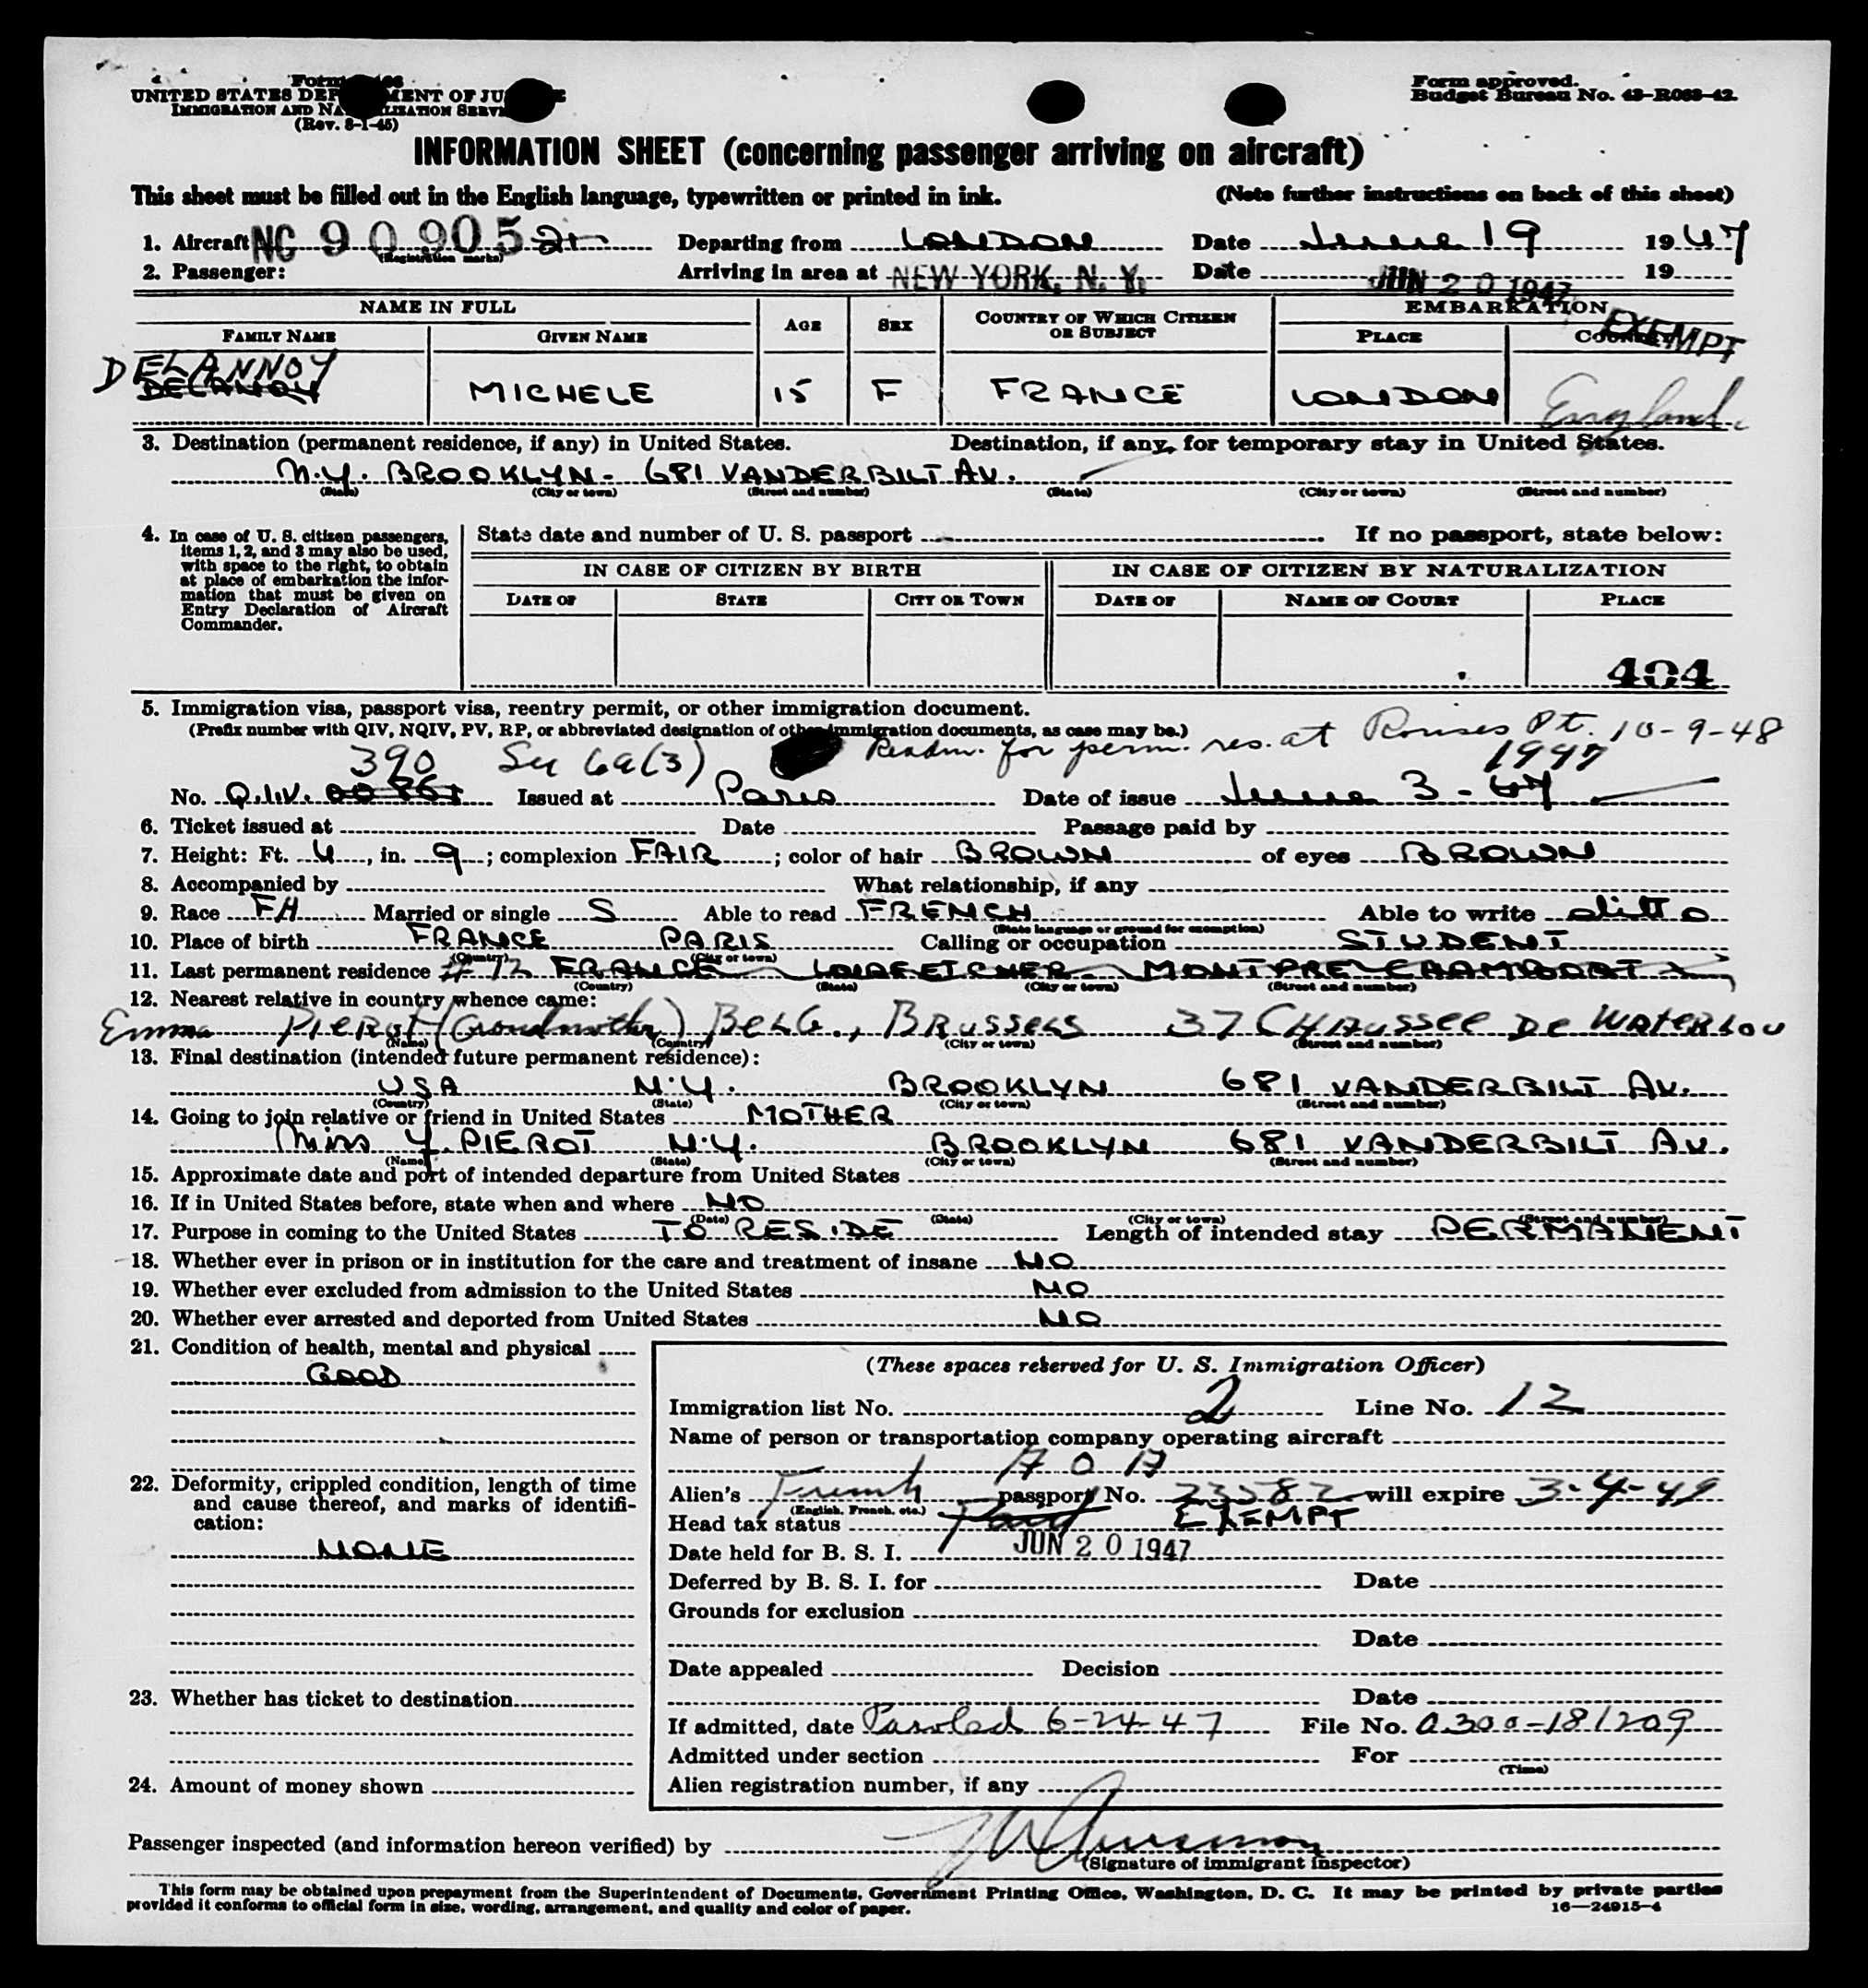 Form
UNITED STATES DEP MENT OF JU
IMMIGRATION AND NA LIZATION SERV
(Rev. 8-1-45)
Form approved.
Budget Bureau No. 43-R063-42.
INFORMATION SHEET (concerning passenger arriving on aircraft)
This sheet must be filled out in the English language, typewritten or printed in ink. (Note further instructions on back of this sheet)
1. Aircraft NC 90905 (Registration marks) Departing from LONDON Date June 19 1947
2. Passenger: Arriving in area at NEW YORK, N. Y. Date JUN 20 1947 19
NAME IN FULL AGE SEX COUNTRY OF WHICH CITIZEN OR SUBJECT EMBARKATION
FAMILY NAME GIVEN NAME PLACE COUNTRY
EXEMPT
DELANNOY
DELANOY MICHELE 15 F FRANCE LONDON England
3. Destination (permanent residence, if any) in United States. Destination, if any, for temporary stay in United States.
N.Y. BROOKLYN- 681 VANDERBILT AV.
(State) (City or town) (Street and number) (State) (City or town) (Street and number)
4. In case of U. S. citizen passengers, items 1, 2, and 3 may also be used, with space to the right, to obtain at place of embarkation the information that must be given on Entry Declaration of Aircraft Commander.
State date and number of U. S. passport If no passport, state below:
IN CASE OF CITIZEN BY BIRTH IN CASE OF CITIZEN BY NATURALIZATION
DATE OF STATE CITY OR TOWN DATE OF NAME OF COURT PLACE
404
5. Immigration visa, passport visa, reentry permit, or other immigration document.
(Prefix number with QIV, NQIV, PV, RP, or abbreviated designation of other immigration documents, as case may be.)
Readm. for perm. res. at Rouses Pt. 10-9-48
390 Su 6a(3) 1947
No. Q.I.V. Issued at Paris Date of issue June 3 - 47
6. Ticket issued at Date Passage paid by
7. Height: Ft. 4, in. 9; complexion FAIR; color of hair BROWN of eyes BROWN
8. Accompanied by What relationship, if any
9. Race FH Married or single S Able to read FRENCH Able to write ditto
(State language or ground for exemption)
10. Place of birth FRANCE PARIS Calling or occupation STUDENT
(Country) (City or town)
11. Last permanent residence FRANCE
(Country) (State) (City or town) (Street and number)
12. Nearest relative in country whence came:
Emma Pierot (Grandmother) BELG., BRUSSELS 37 CHAUSSEE DE WATERLOU
(Name) (Country) (City or town) (Street and number)
13. Final destination (intended future permanent residence):
USA N.Y. BROOKLYN 681 VANDERBILT AV.
(Country) (State) (City or town) (Street and number)
14. Going to join relative or friend in United States MOTHER
Miss Y. PIEROT N.Y. BROOKLYN 681 VANDERBILT AV.
(Name) (State) (City or town) (Street and number)
15. Approximate date and port of intended departure from United States
16. If in United States before, state when and where NO
(Date) (State) (City or town) (Street and number)
17. Purpose in coming to the United States TO RESIDE Length of intended stay PERMANENT
18. Whether ever in prison or in institution for the care and treatment of insane NO
19. Whether ever excluded from admission to the United States NO
20. Whether ever arrested and deported from United States NO
21. Condition of health, mental and physical
GOOD
22. Deformity, crippled condition, length of time and cause thereof, and marks of identification:
NONE
23. Whether has ticket to destination
24. Amount of money shown
(These spaces reserved for U. S. Immigration Officer)
Immigration list No. 2 Line No. 12
Name of person or transportation company operating aircraft
A O A
Alien's French passport No. 23582 will expire 3-4-49
(English, French, etc.)
Head tax status Paid EXEMPT
Date held for B. S. I. JUN 20 1947
Deferred by B. S. I. for Date
Grounds for exclusion
Date
Date appealed Decision
Date
If admitted, date Paroled 6-24-47 File No. 0300-181209
Admitted under section For
(Time)
Alien registration number, if any
Passenger inspected (and information hereon verified) by
(Signature of immigrant inspector)
This form may be obtained upon prepayment from the Superintendent of Documents, Government Printing Office, Washington, D. C. It may be printed by private parties
provided it conforms to official form in size, wording, arrangement, and quality and color of paper. 16—24915-4